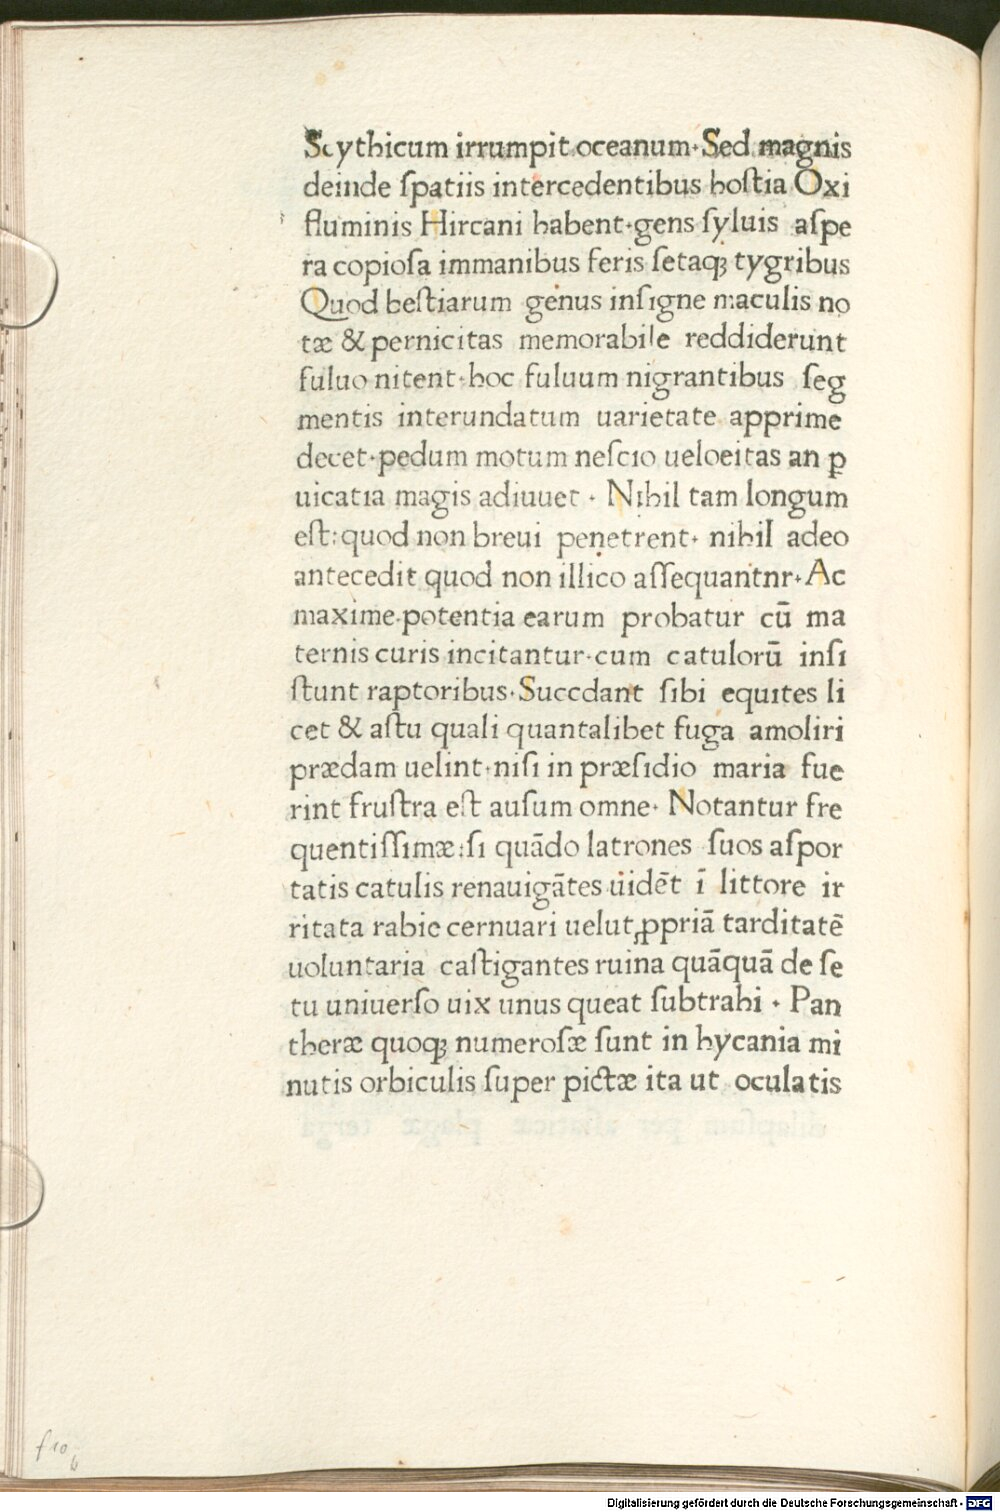 Scythicum irrumpit oceanum· Sed magnis
deinde ſpatiis intercedentibus hoſtia Oxi
fluminis Hircani habent·gens ſyluis aſpe
ra copioſa immanibus feris ſetaqꝫ tygribus
Quod beſtiarum genus inſigne maculis no
tæ & pernicitas memorabile reddiderunt
fuluo nitent·hoc fuluum nigrantibus ſeg
mentis interundatum uarietate apprime
decet·pedum motum neſcio ueloeitas an ꝑ
uicatia magis adiuuet · Nihil tam longum
eſt:quod non breui penetrent· nihil adeo
antecedit quod non illico aſſequantnr·Ac
maxime·potentia earum probatur cū ma
ternis curis incitantur·cum catulorū inſi
ſtunt raptoribus·Succdant ſibi equites li
cet & aſtu quali quantalibet fuga amoliri
prædam uelint·niſi in præſidio maria fue
rint fruſtra eſt auſum omne· Notantur fre
quentiſſimæ:ſi quādo latrones ſuos aſpor
tatis catulis renauigātes uidēt ī littore ir
ritata rabie cernuari uelut ꝓpriā tarditatē
uoluntaria caſtigantes ruina quāquā de ſe
tu uniuerſo uix unus queat ſubtrahi · Pan
theræ quoqꝫ numeroſæ ſunt in hycania mi
nutis orbiculis ſuper pictæ ita ut oculatis
f 10
b
Digitalisierung gefördert durch die Deutsche Forschungsgemeinschaft - DFG